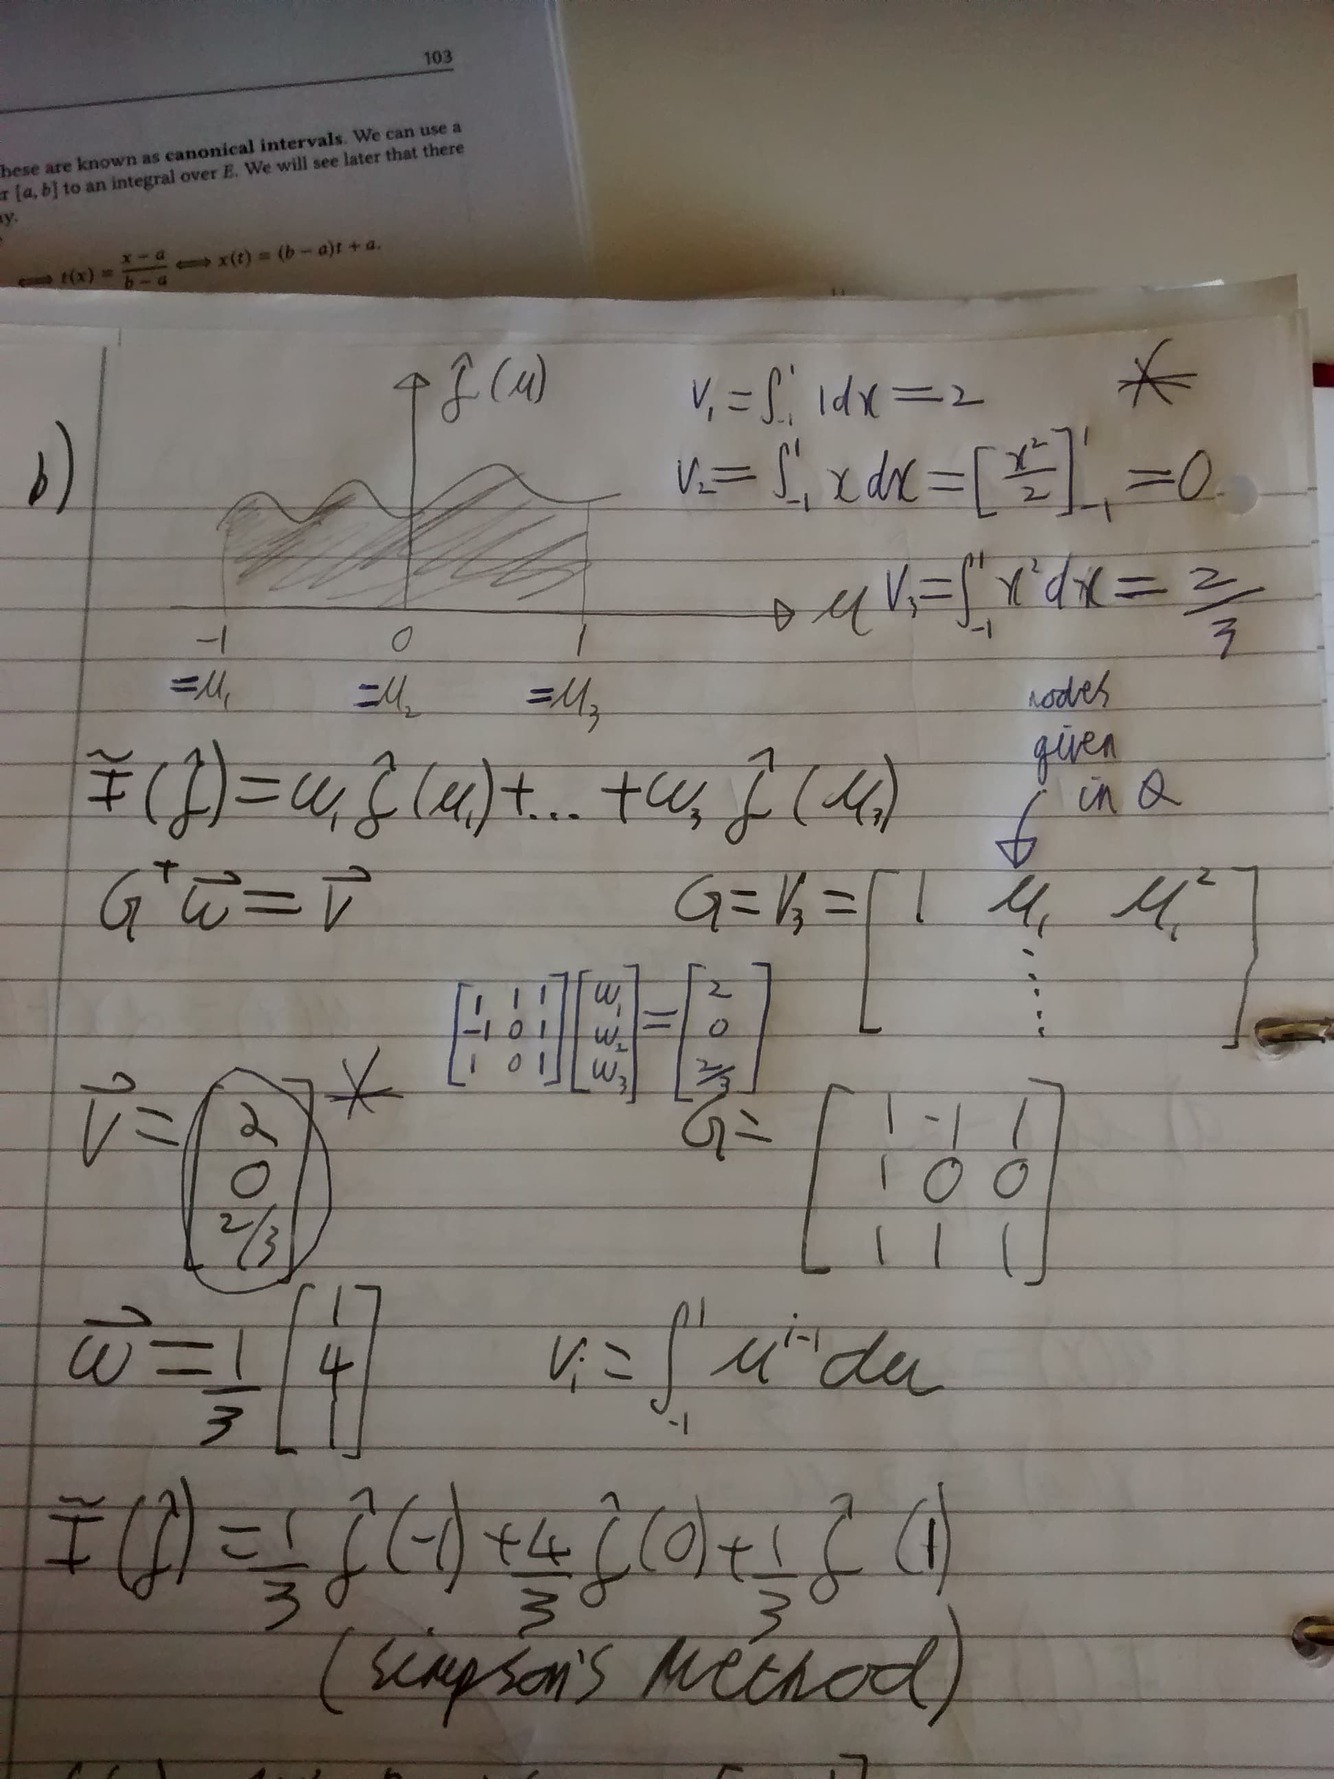 103
hese are known as canonical intervals. We can use a
r [a, b] to an integral over E. We will see later that there
ay.
⟺ t(x) = (x − a)/(b − a) ⟺ x(t) = (b − a)t + a.
b)
f̂(u)
V₁ = ∫₋₁¹ 1dx = 2 *
V₂ = ∫₋₁¹ x dx = [x²/2]₋₁¹ = 0
u V₃ = ∫₋₁¹ x² dx = 2/3
-1 0 1
=u₁ =u₂ =u₃
nodes
given
in Q
Ĩ(f̂) = w₁f̂(u₁)+...+w₃f̂(u₃)
Gᵀw⃗ = v⃗ G = V₃ = [1 u₁ u₁²
⋮ ]
[1 1 1; -1 0 1; 1 0 1][w₁; w₂; w₃] = [2; 0; 2/3]
v⃗ = [2; 0; 2/3] * G = [1 -1 1; 1 0 0; 1 1 1]
w⃗ = 1/3 [1; 4; 1] Vᵢ = ∫₋₁¹ uⁱ⁻¹ du
Ĩ(f̂) = 1/3 f̂(-1) + 4/3 f̂(0) + 1/3 f̂(1)
(Simpson's Method)